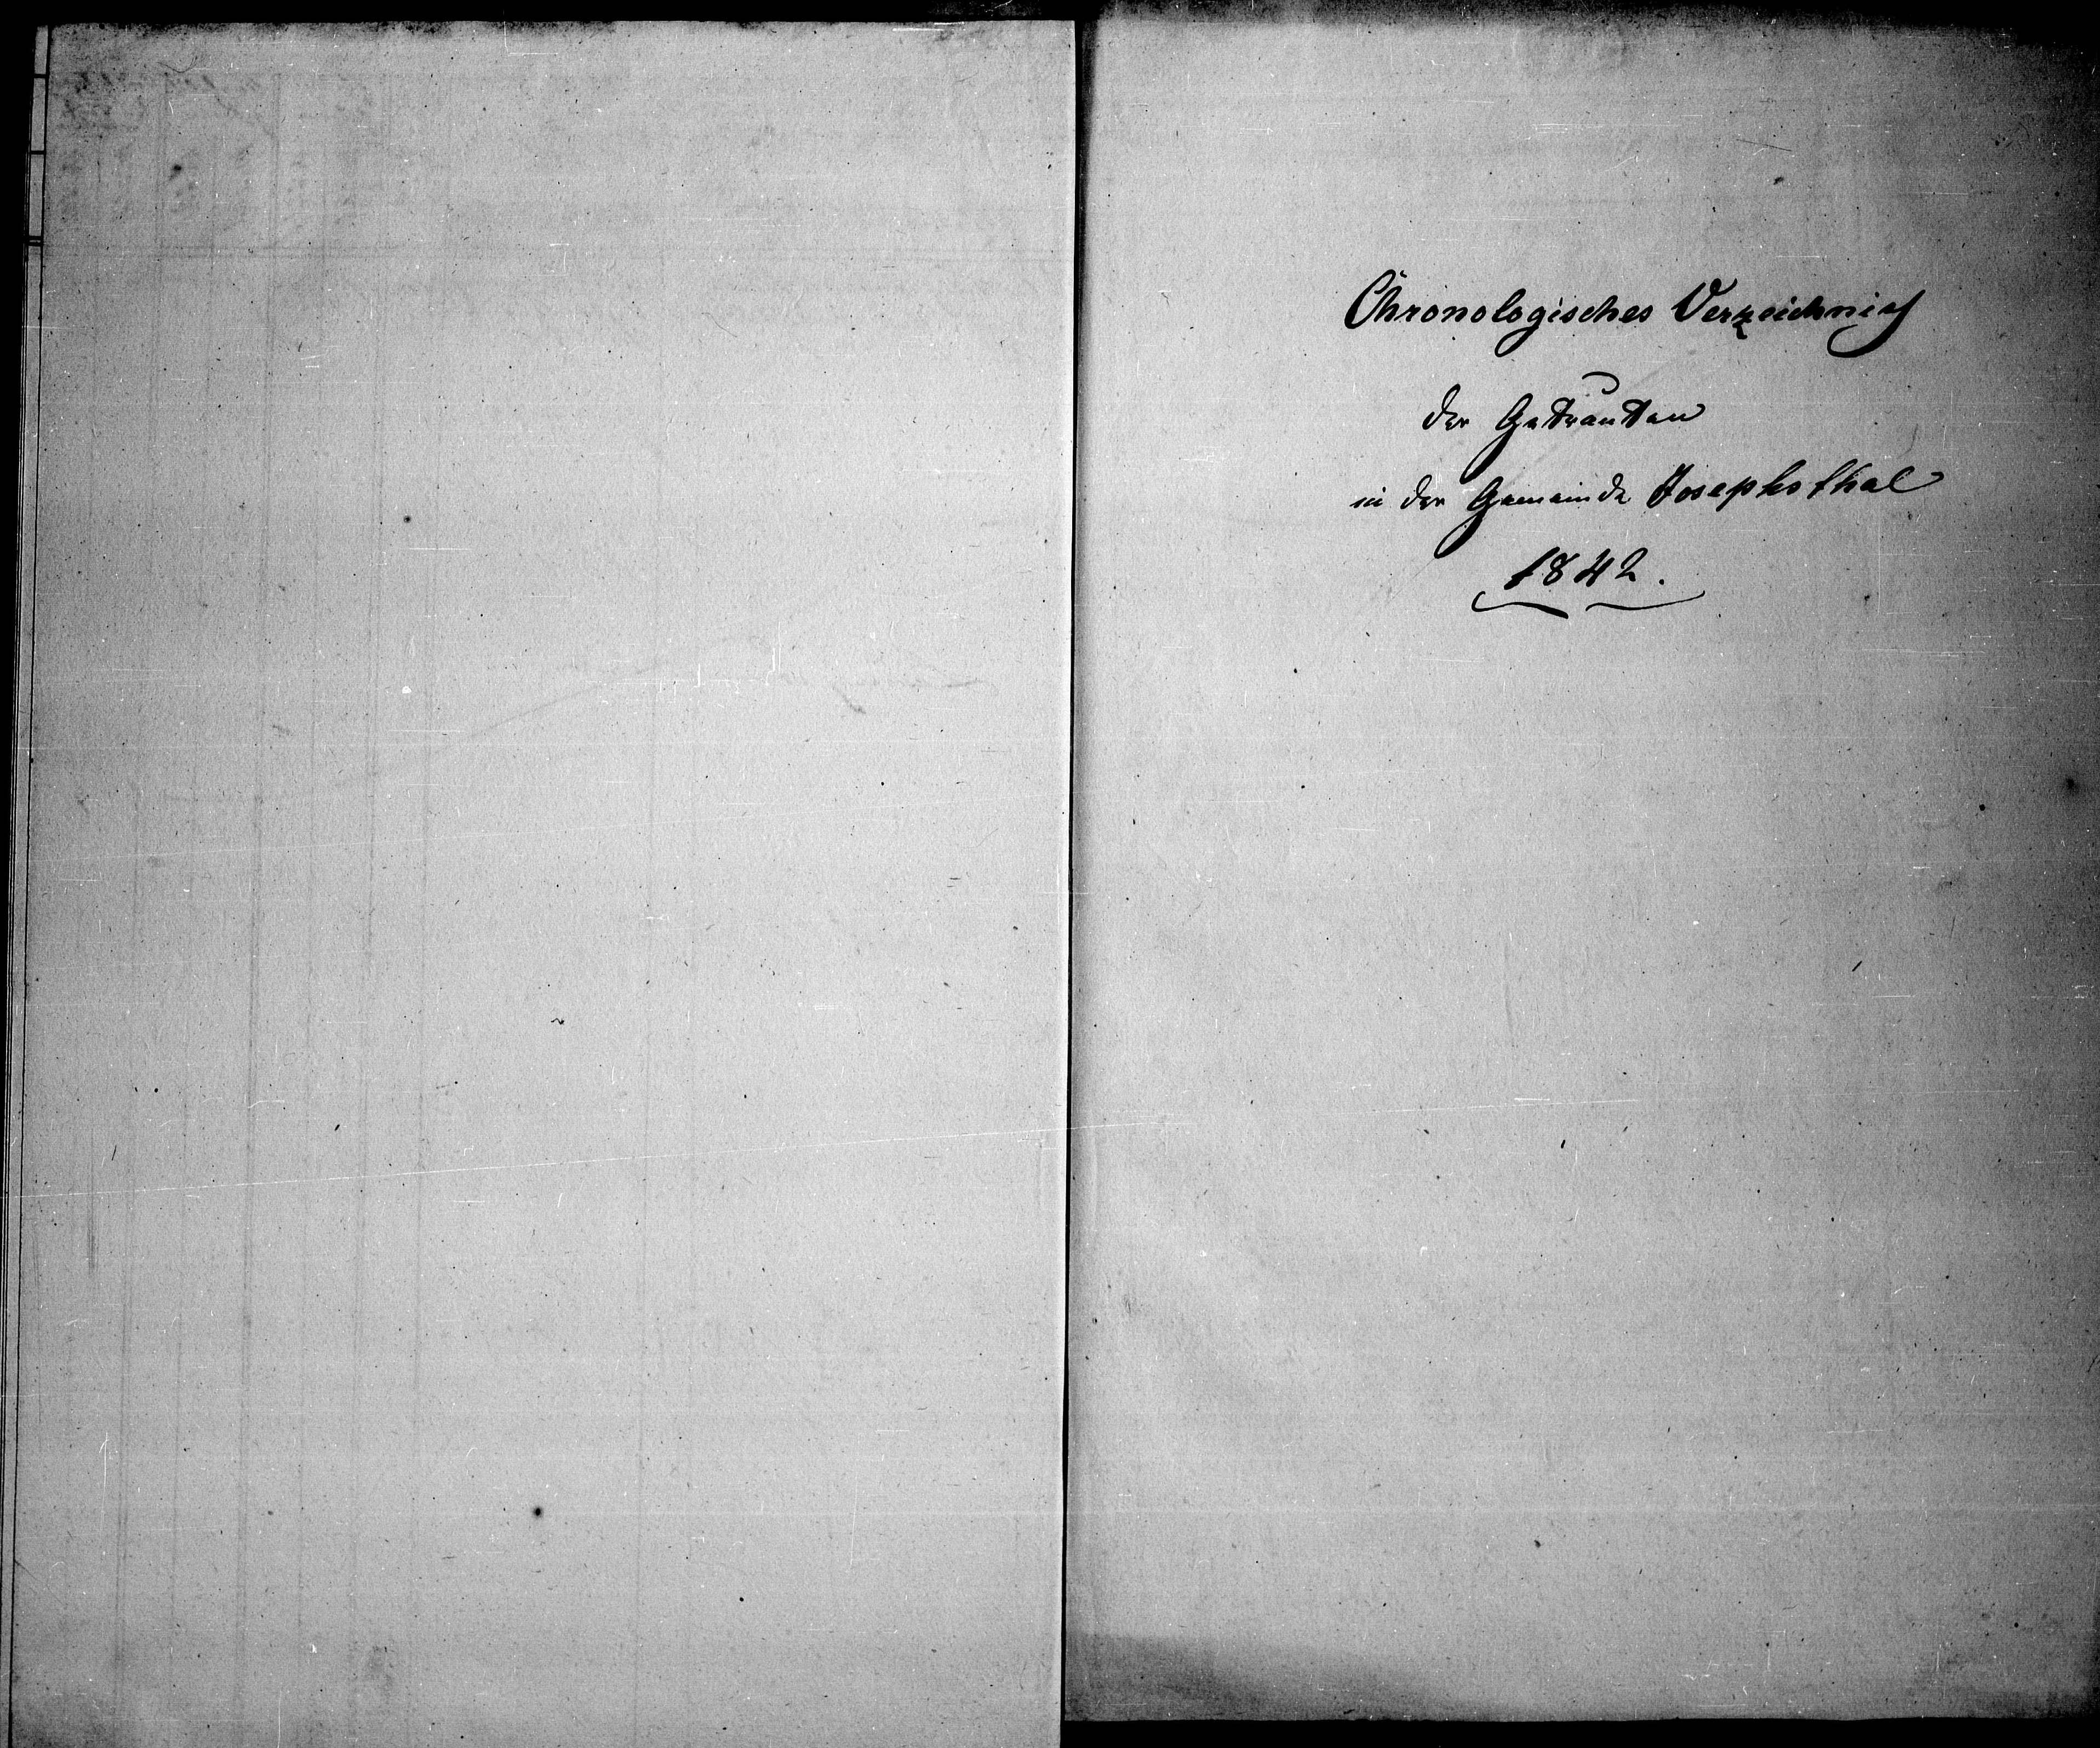 Chronologisches Verzeichniß
der Getrauten
in der Gemeinde Josephsthal
1842.